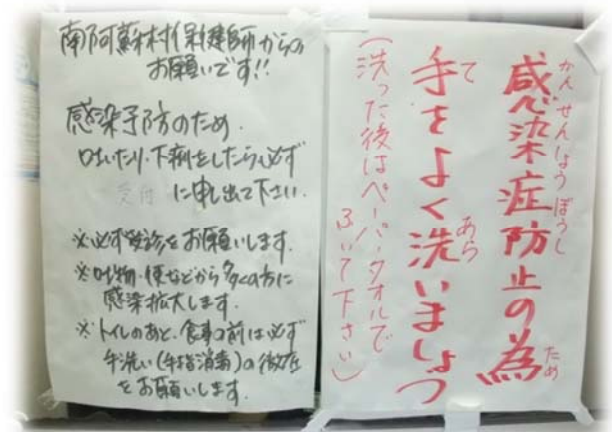 南阿蘇村保健師からの
お願いです!!
感染予防のため、
吐いたり、下痢をしたら必ず
受付に申し出て下さい.
※必ず受診をお願いします.
※吐物・便などから多くの方に
感染拡大します.
※トイレのあと、食事の前は必ず
手洗い(手指消毒)の徹底
をお願いします.
感染症防止の為
かんせんしょうぼうし ため
手をよく洗いましょう
て あら
(洗った後はペーパータオルで
ふいて下さい)